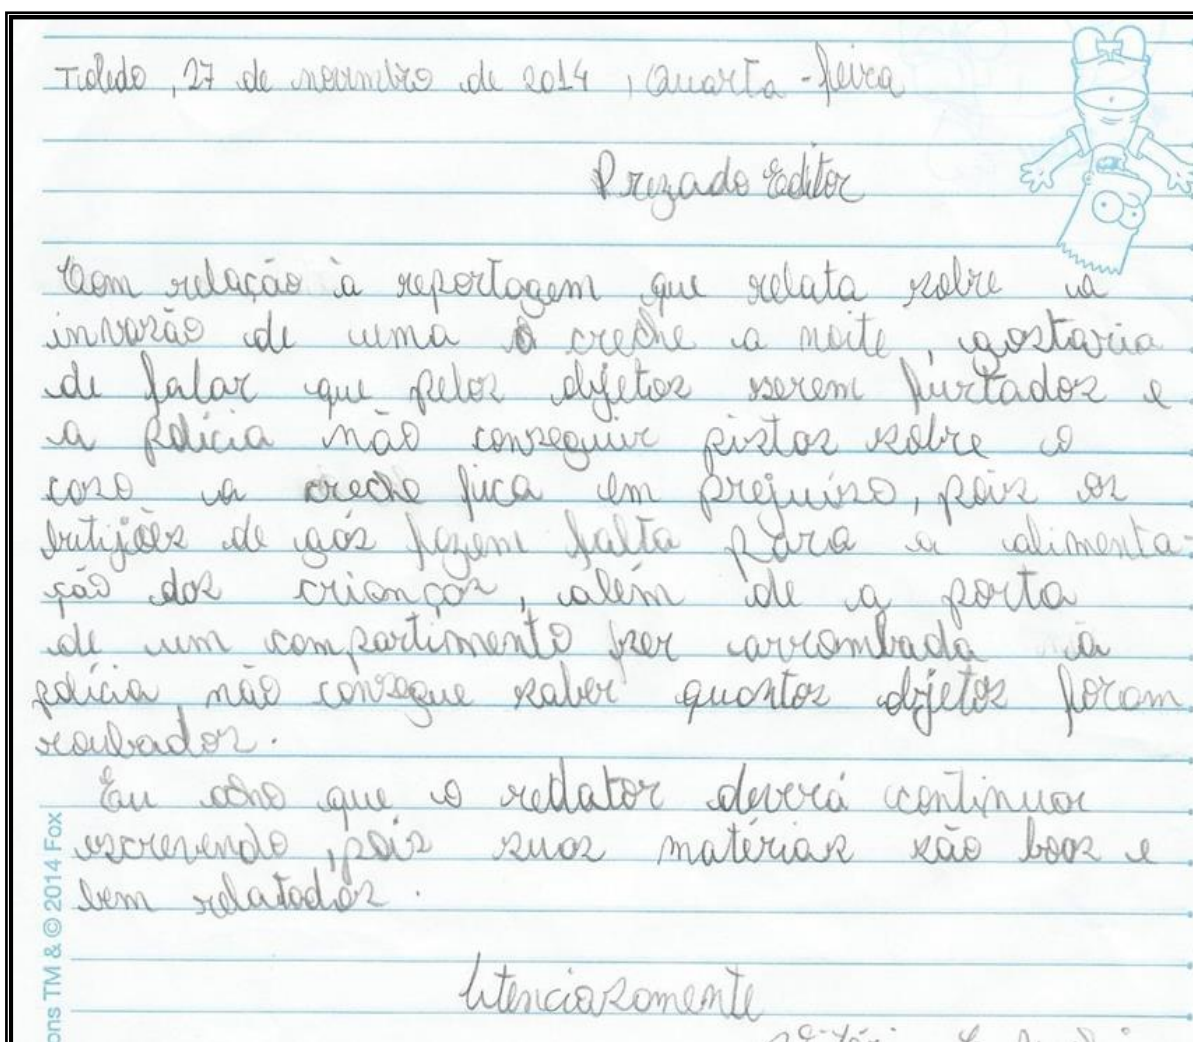 Toledo, 27 de novembro de 2014, Quarta-feira
Prezado Editor
Com relação à reportagem que relata sobre a
invasão de uma creche a noite, gostaria
de falar que pelos objetos serem furtados e
a polícia não conseguir pistas sobre o
caso a creche fica em prejuiso, pois os
butijões de gás fazem falta para a alimenta-
ção das crianças, além de a porta
de um compartimento ser arrombada a
polícia não consegue saber quantos objetos foram
roubados.
Eu acho que o redator deverá continuar
escrevendo, pois suas matérias são boas e
bem relatadas.
Atenciosamente
ons TM & © 2014 Fox